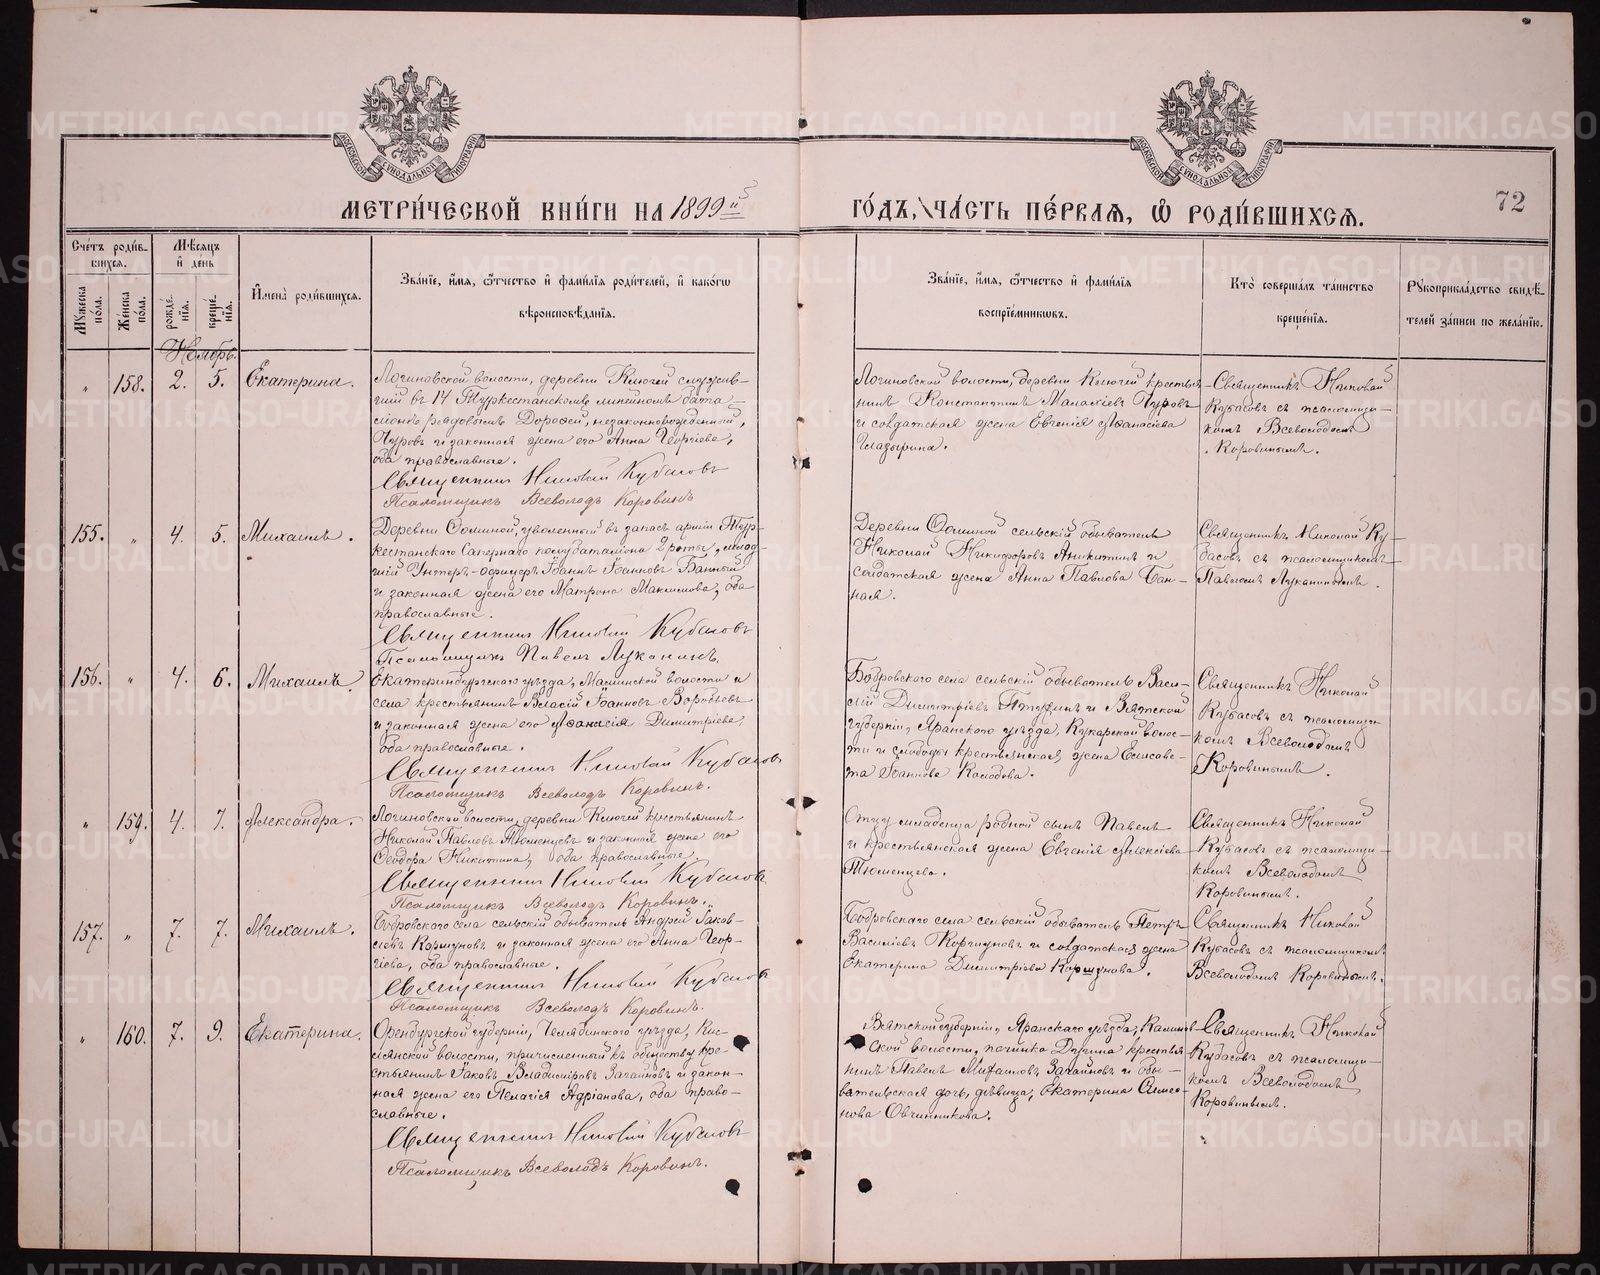 МЕТРИ́ЧЕСКОЙ КНИ́ГИ НА 1899й
ГО́ДЪ, ЧА́СТЬ ПЕ́РВАЯ, Ѡ РОДИ́ВШИХСЯ.
72
Сче́тъ роди́в-
шихся.
Му́жеска по́ла.
Же́нска по́ла.
Мѣ́сяцъ
и́ де́нь
рожде́-
нїя.
креще́-
нїя.
И҆мена̀ роди́вшихся.
Зва́нїе, и҆́мя, ѻ҆́тчество и҆ фами́лїя роди́телей, и҆ како́гѡ
вѣроисповѣ́данїя.
Зва́нїе, и҆́мя, ѻ҆́тчество и҆ фами́лїя
воспрїе́мниковъ.
Кто̀ соверша́лъ та́инство
креще́нїя.
Рꙋкоприкла́дство свидѣ́-
телей за́писи по жела́нїю.
Ноябрь.
„ 158. 2. 5. Екатерина.
Логиновской волости, деревни Ключей служив-
шій въ 14 Туркестанскомъ линейномъ бата-
ліонѣ рядовымъ Дорофей, незаконнорожденный,
Чуровъ и законная жена его Анна Георгіева,
оба православные.
Священникъ Николай Кубасовъ
Псаломщикъ Всеволодъ Коровинъ
Логиновской волости, деревни Ключей крестья-
нинъ Константинъ Малахіевъ Чуровъ
и солдатская жена Евгенія Аѳанасіева
Глазырина.
Священникъ Николай
Кубасовъ съ псаломщи-
комъ Всеволодомъ
Коровинымъ.
155. „ 4. 5. Михаилъ.
Деревни Ѳоминой, уволенный въ запасъ арміи Тур-
кестанскаго Сапернаго полубаталіона 2 роты, млад-
шій Унтеръ-офицеръ Іоаннъ Іоанновъ Банный
и законная жена его Матрона Максимова, оба
православные.
Священникъ Николай Кубасовъ
Псаломщикъ Павелъ Луканинъ.
Деревни Ѳоминой сельскій обыватель
Николай Никифоровъ Аникинъ и
солдатская жена Анна Павлова Бан-
ная.
Священникъ Николай Ку-
басовъ съ псаломщикомъ
Павломъ Луканинымъ.
156. „ 4. 6. Михаилъ.
Екатеринбургскаго уѣзда, Маминской волости и
села крестьянинъ Власій Іоанновъ Воробьевъ
и законная жена его Аѳанасія Димитріева,
оба православные.
Священникъ Николай Кубасовъ
Псаломщикъ Всеволодъ Коровинъ.
Бобровского села сельскій обыватель Васи-
лій Димитріевъ Птухинъ и Вятской
губерніи, Яранскаго уѣзда, Кукарской волос-
ти и слободы крестьянская жена Елисаве-
та Іоаннова Колодова.
Священникъ Николай
Кубасовъ съ псаломщи-
комъ Всеволодомъ
Коровинымъ.
„ 159. 4. 7. Александра.
Логиновской волости, деревни Ключей крестьянинъ
Николай Павловъ Тюменцевъ и законная жена его
Ѳеодора Никитина, оба православные.
Священникъ Николай Кубасовъ
Псаломщикъ Всеволодъ Коровинъ.
Отцу младенца родной сынъ Павелъ
и крестьянская жена Евгенія Алексіева
Тюменцева.
Священникъ Николай
Кубасовъ съ псаломщи-
комъ Всеволодомъ
Коровинымъ.
157. „ 7. 7. Михаилъ.
Бобровского села сельскій обыватель Андрей Іаков-
левъ Коршуновъ и законная жена его Анна Геор-
гіева, оба православные.
Священникъ Николай Кубасовъ
Псаломщикъ Всеволодъ Коровинъ.
Бобровского села сельскій обыватель Петръ
Василіевъ Коршуновъ и солдатская жена
Екатерина Димитріева Коршунова.
Священникъ Николай
Кубасовъ съ псаломщикомъ
Всеволодомъ Коровинымъ.
„ 160. 7. 9. Екатерина.
Оренбургской губерніи, Челябинского уѣзда, Кис-
лянской волости, причисленный къ обществу кре-
стьянинъ Іаковъ Владиміровъ Загайновъ и закон-
ная жена его Пелагія Адріанова, оба право-
славные.
Священникъ Николай Кубасовъ
Псаломщикъ Всеволодъ Коровинъ.
Вятской губерніи, Яранскаго уѣзда,
ской волости, починка крестья-
нинъ Павелъ Михаиловъ Загайновъ и обы-
вательская дочь, дѣвица, Екатерина Симео-
нова Овчинникова.
Священникъ Николай
Кубасовъ съ псаломщи-
комъ Всеволодомъ
Коровинымъ.
METRIKI.GASO-URAL.RU